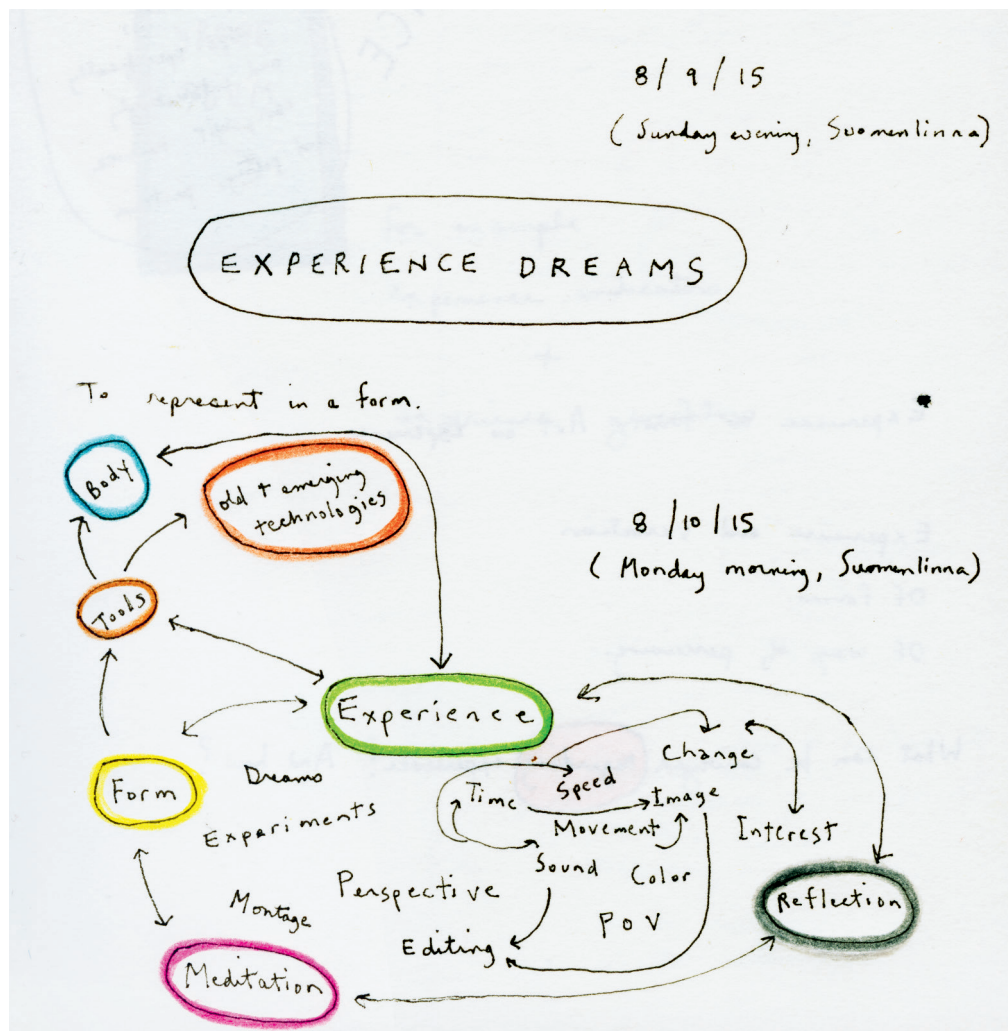 8/9/15
(Sunday evening, Suomenlinna)
EXPERIENCE DREAMS
To represent in a form.
Body
old + emerging
technologies
8/10/15
(Monday morning, Suomenlinna)
Tools
Experience
Change
Form
Dreams
Time
Speed
Image
Experiments
Movement
Interest
Sound
Color
Perspective
Reflection
Montage
PoV
Editing
Meditation